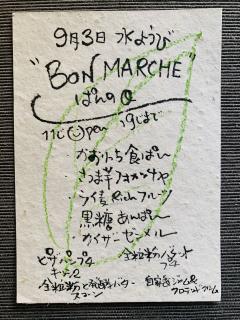 9月3日 水ようび
"BON MARCHE"
ぱんのa
11じ open 19じまで
・かおたち食ぱん
・さつま芋フォカッチャ
・ライ麦Richフルーツ
・黒糖あんぱん
・カイザーゼーメル
ピザパンプチ
キッシュ
全粒粉バゲット
プチ
全粒粉と発酵バター
スコーン
自家製ジャム&